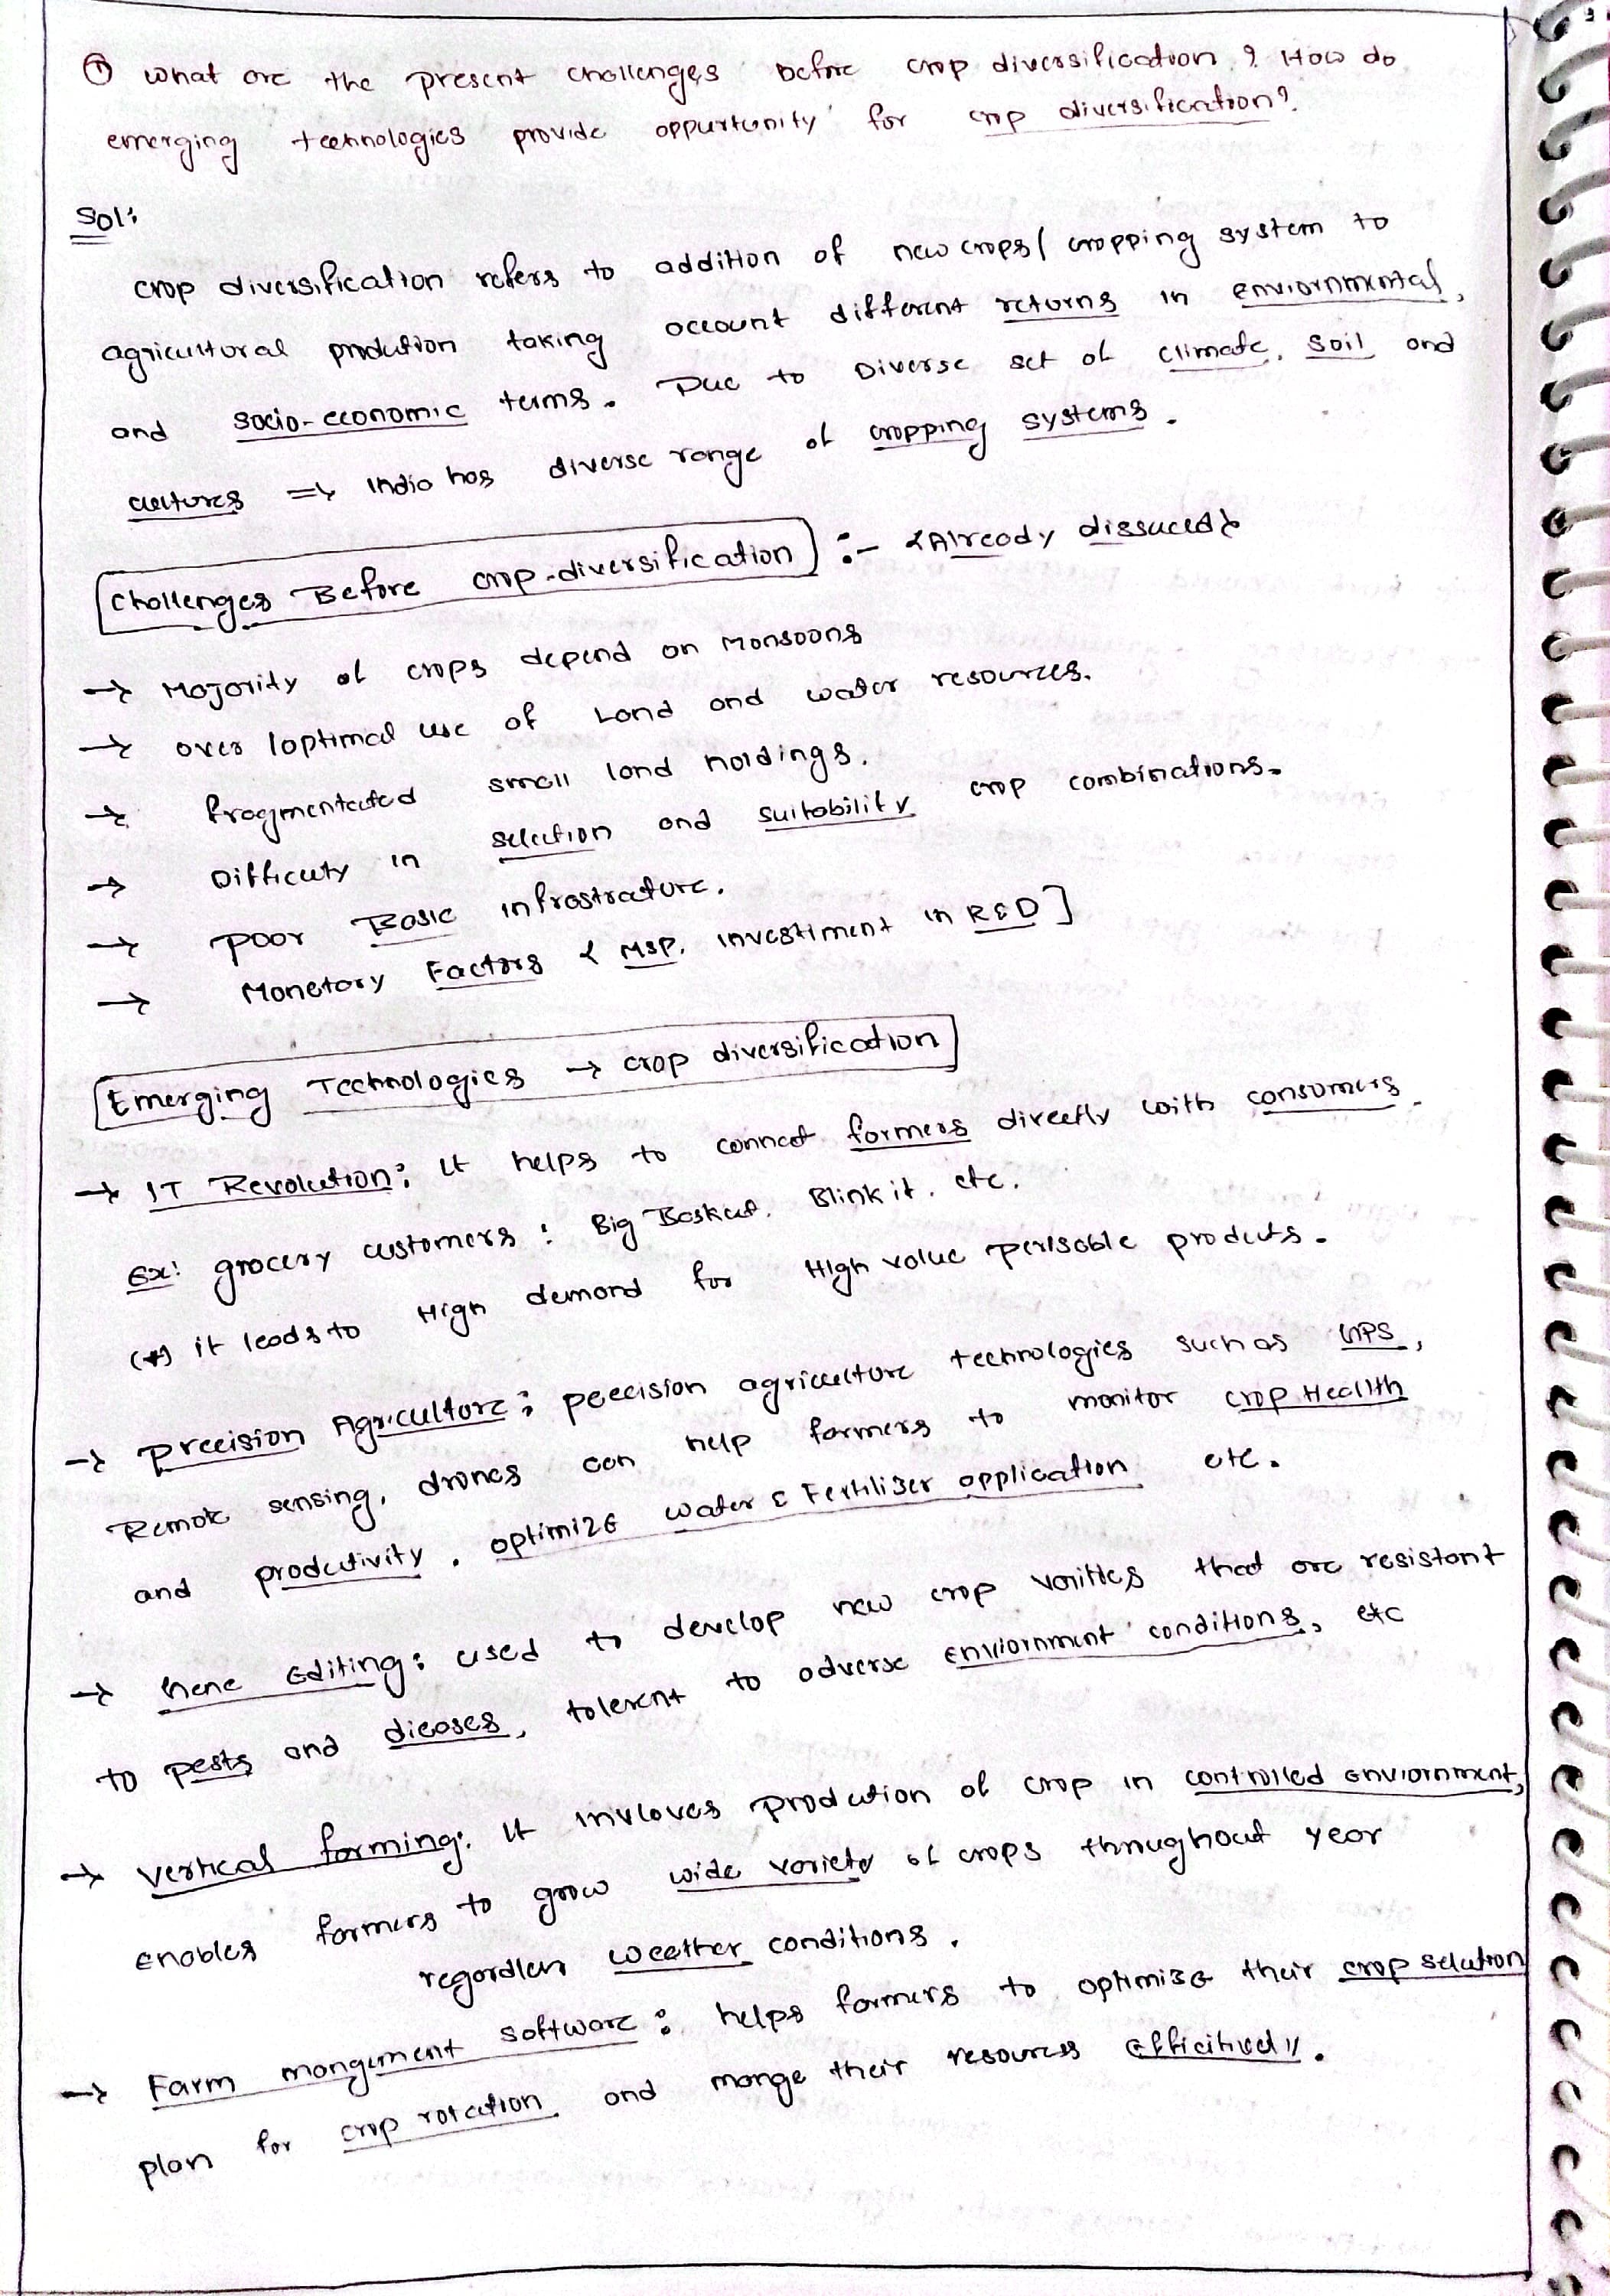 ① What are the present challenges before crop diversification? How do
emerging technologies provide oppurtunity for crop diversification?
Sol:
crop diversification refers to addition of new crops/ cropping system to
agricultural prodution taking account different returns in enviornmental,
and socio-economic terms. Due to Diverse set of climate, soil and
cultures => India has diverse range of cropping systems.
Challenges Before crop-diversification :- {Already dissuced}
→ Majority of crops depend on Monsoons
→ over loptimal use of Land and water resources.
→ fragmentated small land holdings.
→ Difficuty in selection and suitability crop combinations.
→ poor Basic infrastrature.
→ Monetory Factors { MSP, investiment in R&D ]
Emerging Technologies → crop diversification
→ IT Revolution: It helps to connect farmers directly with consumers.
Ex: grocery customers: Big Basket, Blink it, etc.
(*) it leads to High demand for High value perisable products.
→ precision Agriculture: precision agriculture technologies such as GPS,
Remote sensing, drones can help farmers to monitor crop Health
and produtivity, optimize water & Fertilizer application etc.
→ Gene Editing: used to develop new crop varities that are resistant
to pests and dieases, tolerent to adverse enviornment conditions, etc
→ vertical farming: It invloves prodution of crop in controlled enviornment,
enables farmers to grow wide variety of crops throughout year
regardless weather conditions.
→ Farm mangement software: helps farmers to optimize their crop selution
plan for crop rotation and mange their resources